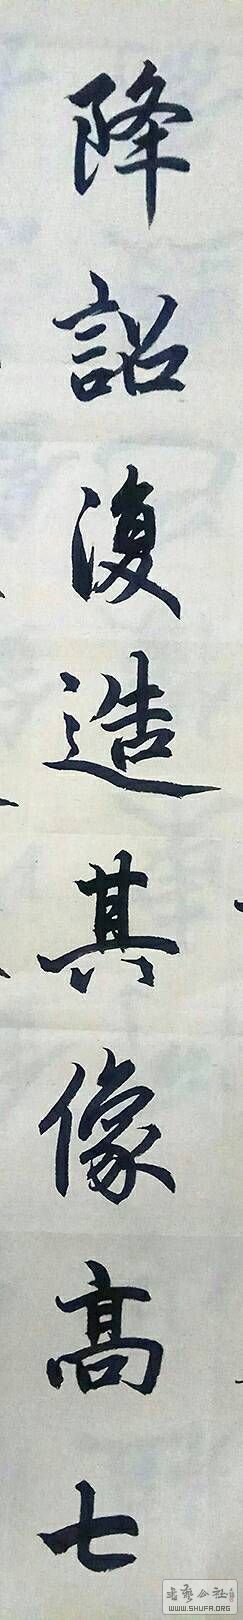 降詔復造其像高七
書藝公社
WWW.SHUFA.ORG